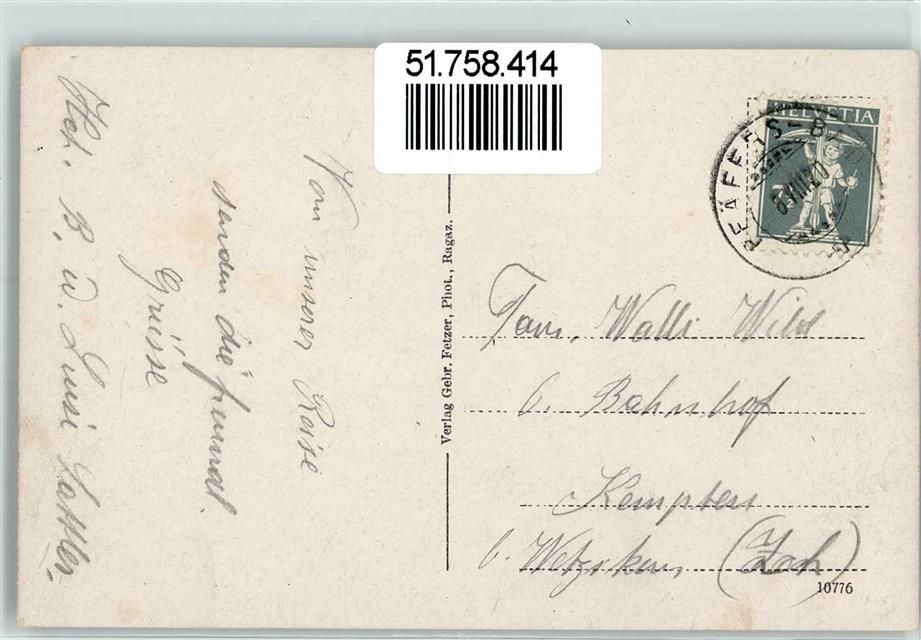 51.758.414
HELVETIA
PFÄFERS-B
Von unserer Reise
senden die freundl.
Grüsse
Hch. B. u. Luisi Sattler.
Verlag Gebr. Fetzer, Phot., Ragaz.
Fam. Walli Wild
b. Bahnhof
Kempten
b. Wetzikon (Zch)
10776